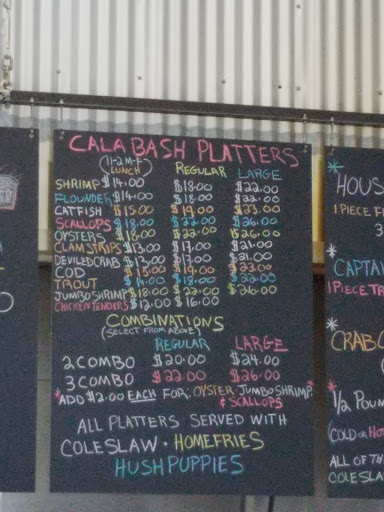 CALABASH PLATTERS
(11-2 M-F) LUNCH REGULAR LARGE
SHRIMP $14.00 $18.00 $22.00
FLOUNDER $14.00 $18.00 $22.00
CATFISH $15.00 $19.00 $23.00
SCALLOPS $18.00 $22.00 $26.00
OYSTERS $18.00 $22.00 $26.00
CLAM STRIPS $13.00 $17.00 $21.00
DEVILED CRAB $13.00 $17.00 $21.00
COD $15.00 $19.00 $23.00
TROUT $14.00 $18.00 $22.00
JUMBO SHRIMP $18.00 $22.00 $26.00
CHICKEN TENDERS $12.00 $16.00
COMBINATIONS
(SELECT FROM ABOVE)
REGULAR LARGE
2 COMBO $20.00 $24.00
3 COMBO $22.00 $26.00
*ADD $2.00 EACH FOR: OYSTER, JUMBO SHRIMP,
& SCALLOPS
ALL PLATTERS SERVED WITH
COLESLAW · HOMEFRIES
HUSHPUPPIES
HOUS
1 PIECE F
3
CAPTA
1 PIECE TR
CRAB
1/2 POUN
COLD OR HO
ALL OF TH
COLESLA